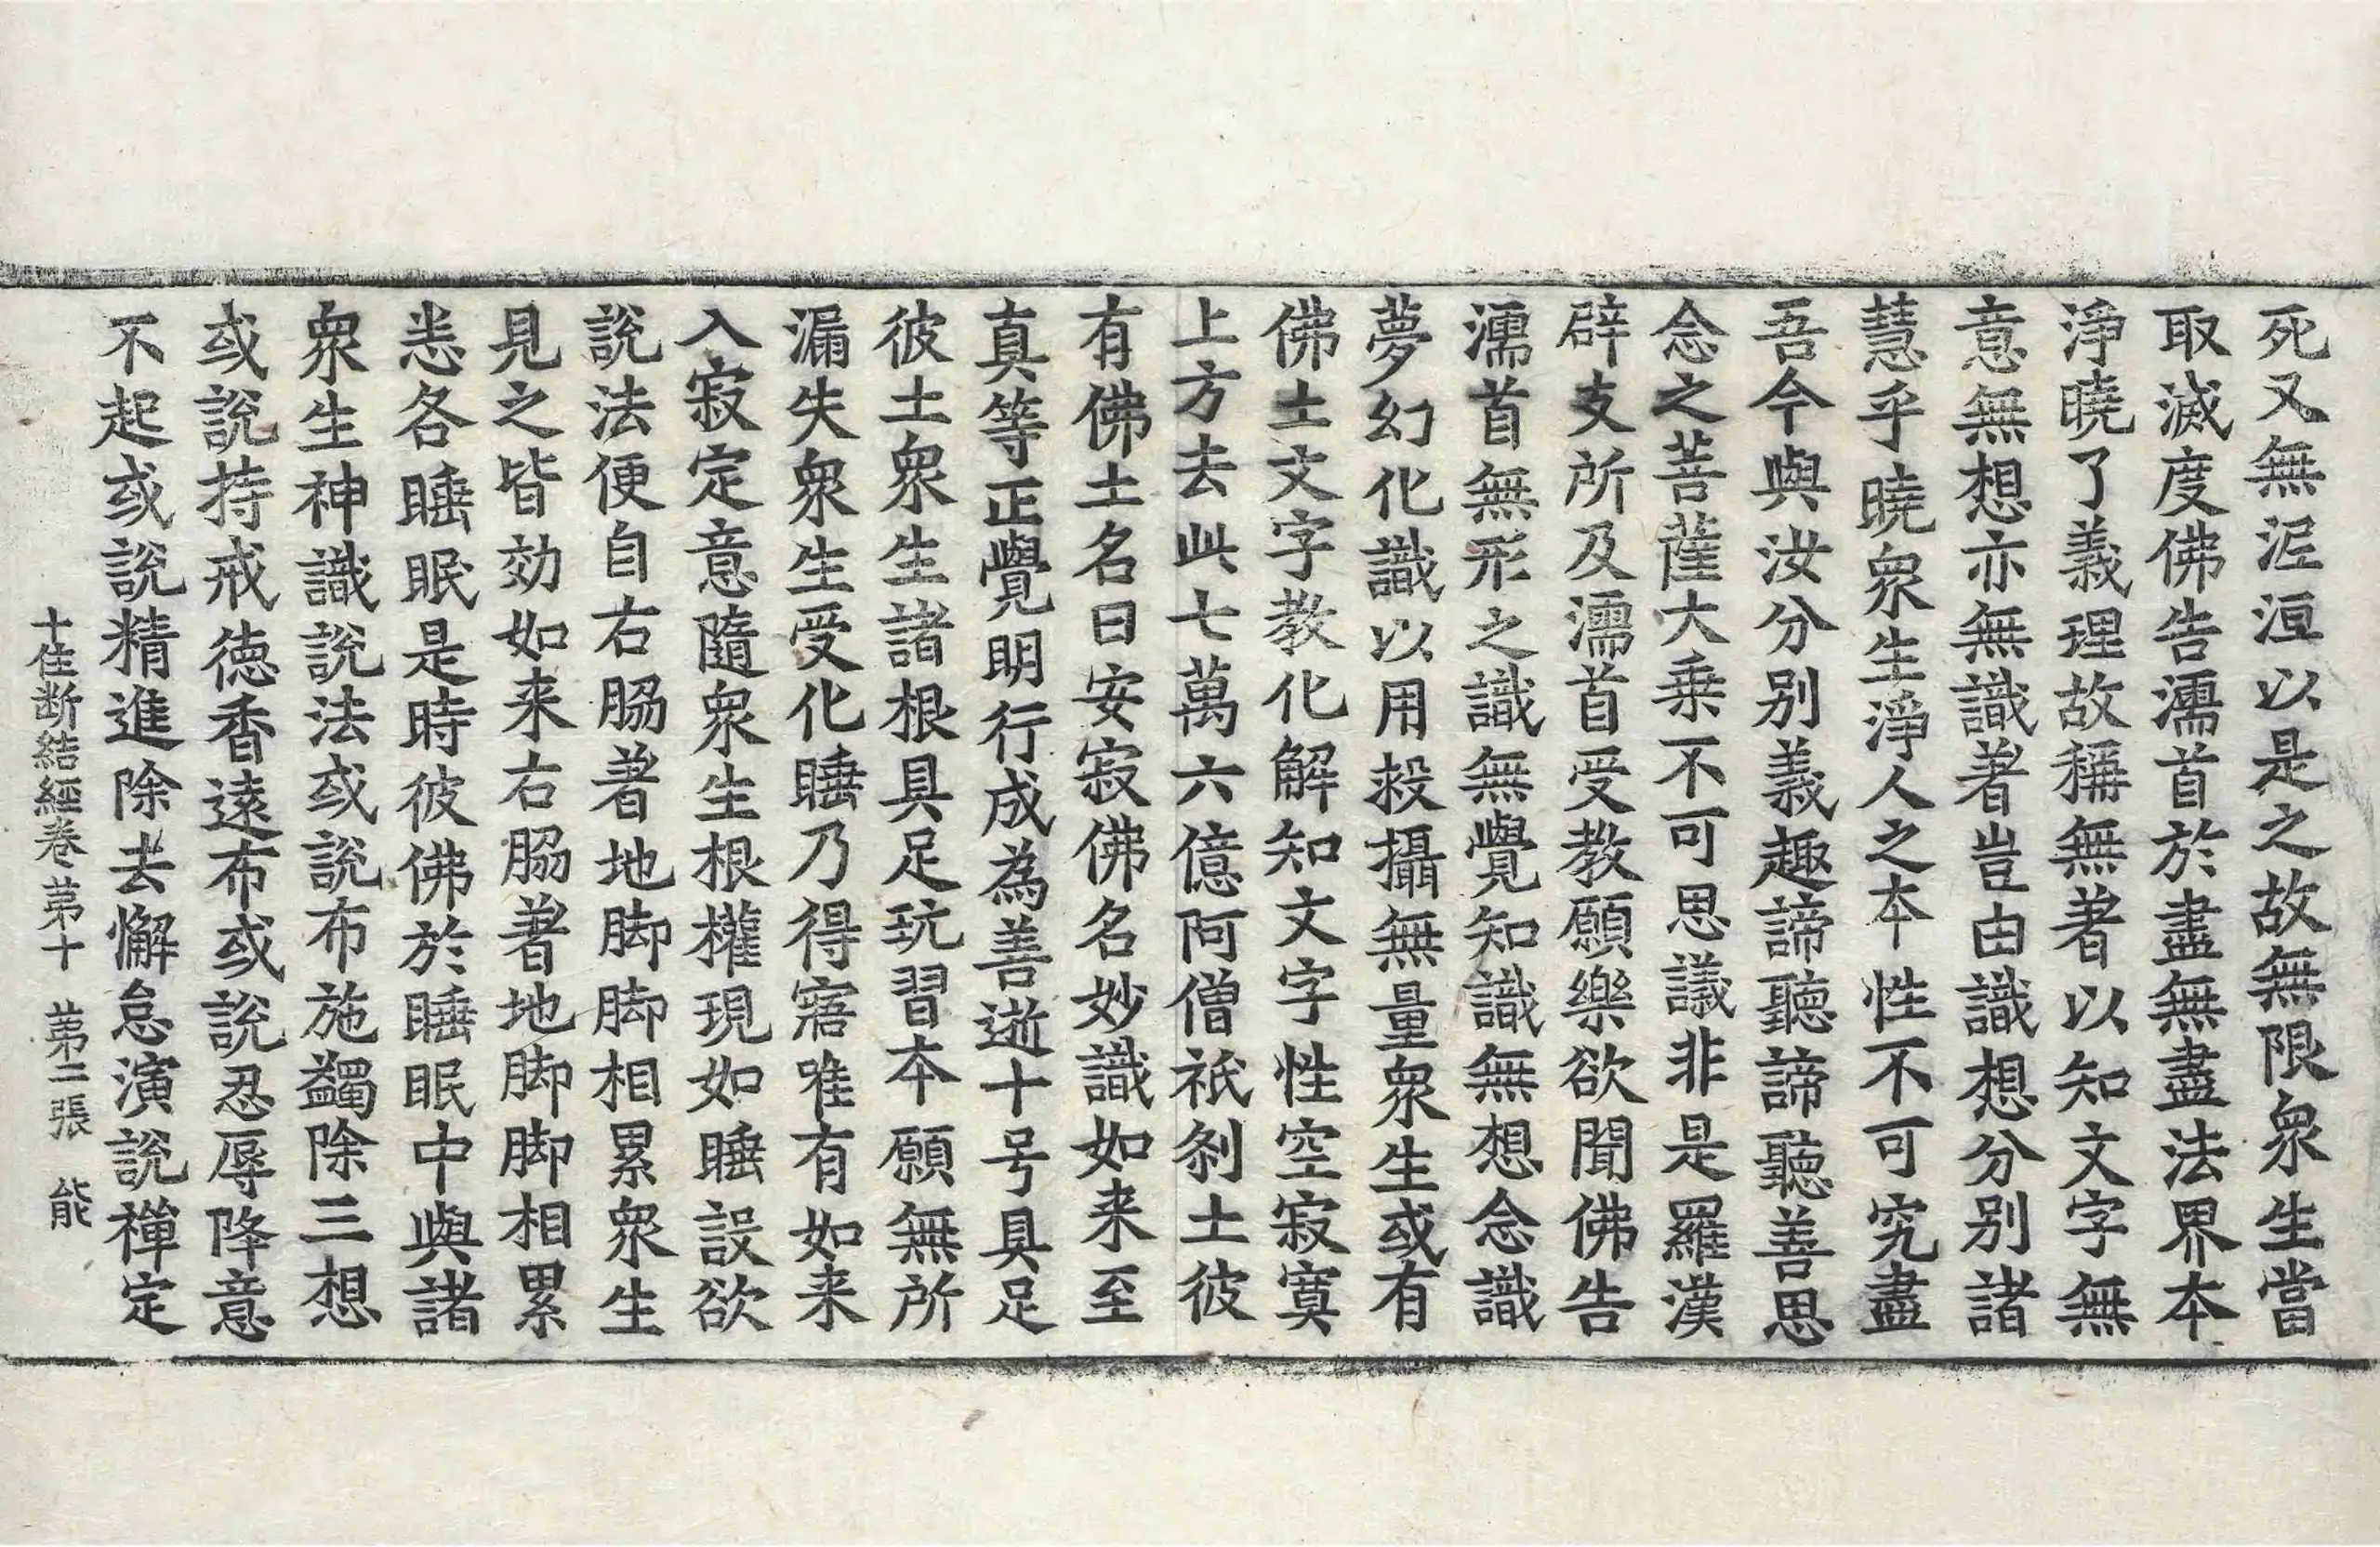 死又無泥洹以是之故無限衆生當
取滅度佛告濡首於盡無盡法界本
淨曉了義理故稱無著以知文字無
意無想亦無識著豈由識想分别諸
慧乎曉衆生淨人之本性不可究盡
吾今與汝分别義趣諦聽諦聽善思
念之菩薩大乗不可思議非是羅漢
辟支所及濡首受教願樂欲聞佛告
濡首無形之識無覺知識無想念識
夢幻化識以用煞攝無量衆生或有
佛土文字教化解知文字性空寂寞
上方去此七萬六億阿僧祇刹土彼
有佛土名曰安寂佛名妙識如来至
真等正覺明行成為善逝十号具足
彼土衆生諸根具足玩習本願無所
漏失衆生受化睡乃得寤唯有如来
入寂定意隨衆生根權現如睡設欲
說法便自右脇著地脚脚相累衆生
見之皆効如来右脇著地脚脚相累
恙各睡眠是時彼佛於睡眠中與諸
衆生神識說法或說布施蠲除三想
或說持戒德香遠布或說忍辱降意
不起或說精進除去懈怠演說禪定
十住断結經卷第十　第二張　能